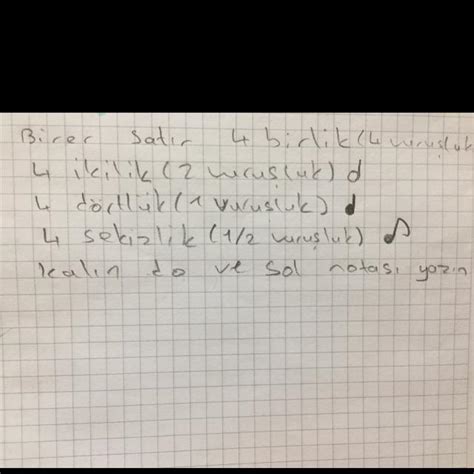 Birer satır 4 birlik (4 vuruşluk
4 ikilik (2 vuruşluk)
4 dörtlük (1 vuruşluk)
4 sekizlik (1/2 vuruşluk)
kalın do ve sol notası yazın